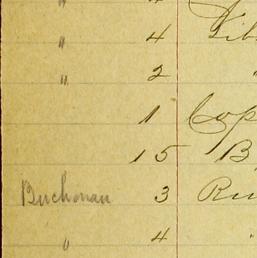 " 4
" 2
1 Cop
15 B
Buchanan 3 Ru
" 4 "